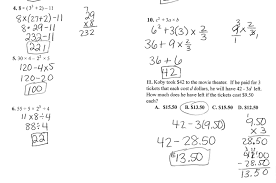 4. 8 × (3³ + 2) − 11
8×(27+2)−11
8 × 29 − 11
232 − 11
221
29
× 8
232
5. 30 × 4 − 2² × 5
120 − 4×5
120 − 20
100
6. 55 ÷ 5 × 2³ ÷ 4
11 × 8 ÷ 4
88 ÷ 4
22
10. c² + 3a × b
6² + 3(3) × 2/3
36 + 9 × 2/3
36 + 6
42
9/1 × 2/3
11. Koby took $42 to the movie theater. If he paid for 3
tickets that each cost d dollars, he will have 42 - 3d left.
How much does he have left if the tickets cost $9.50
each?
A. $15.50 B. $13.50 C. $15.50 D. $12.50
42 − 3(9.50)
42 − 28.50
$13.50
9.50
× 3
28.50
42.00
− 28.50
13.50